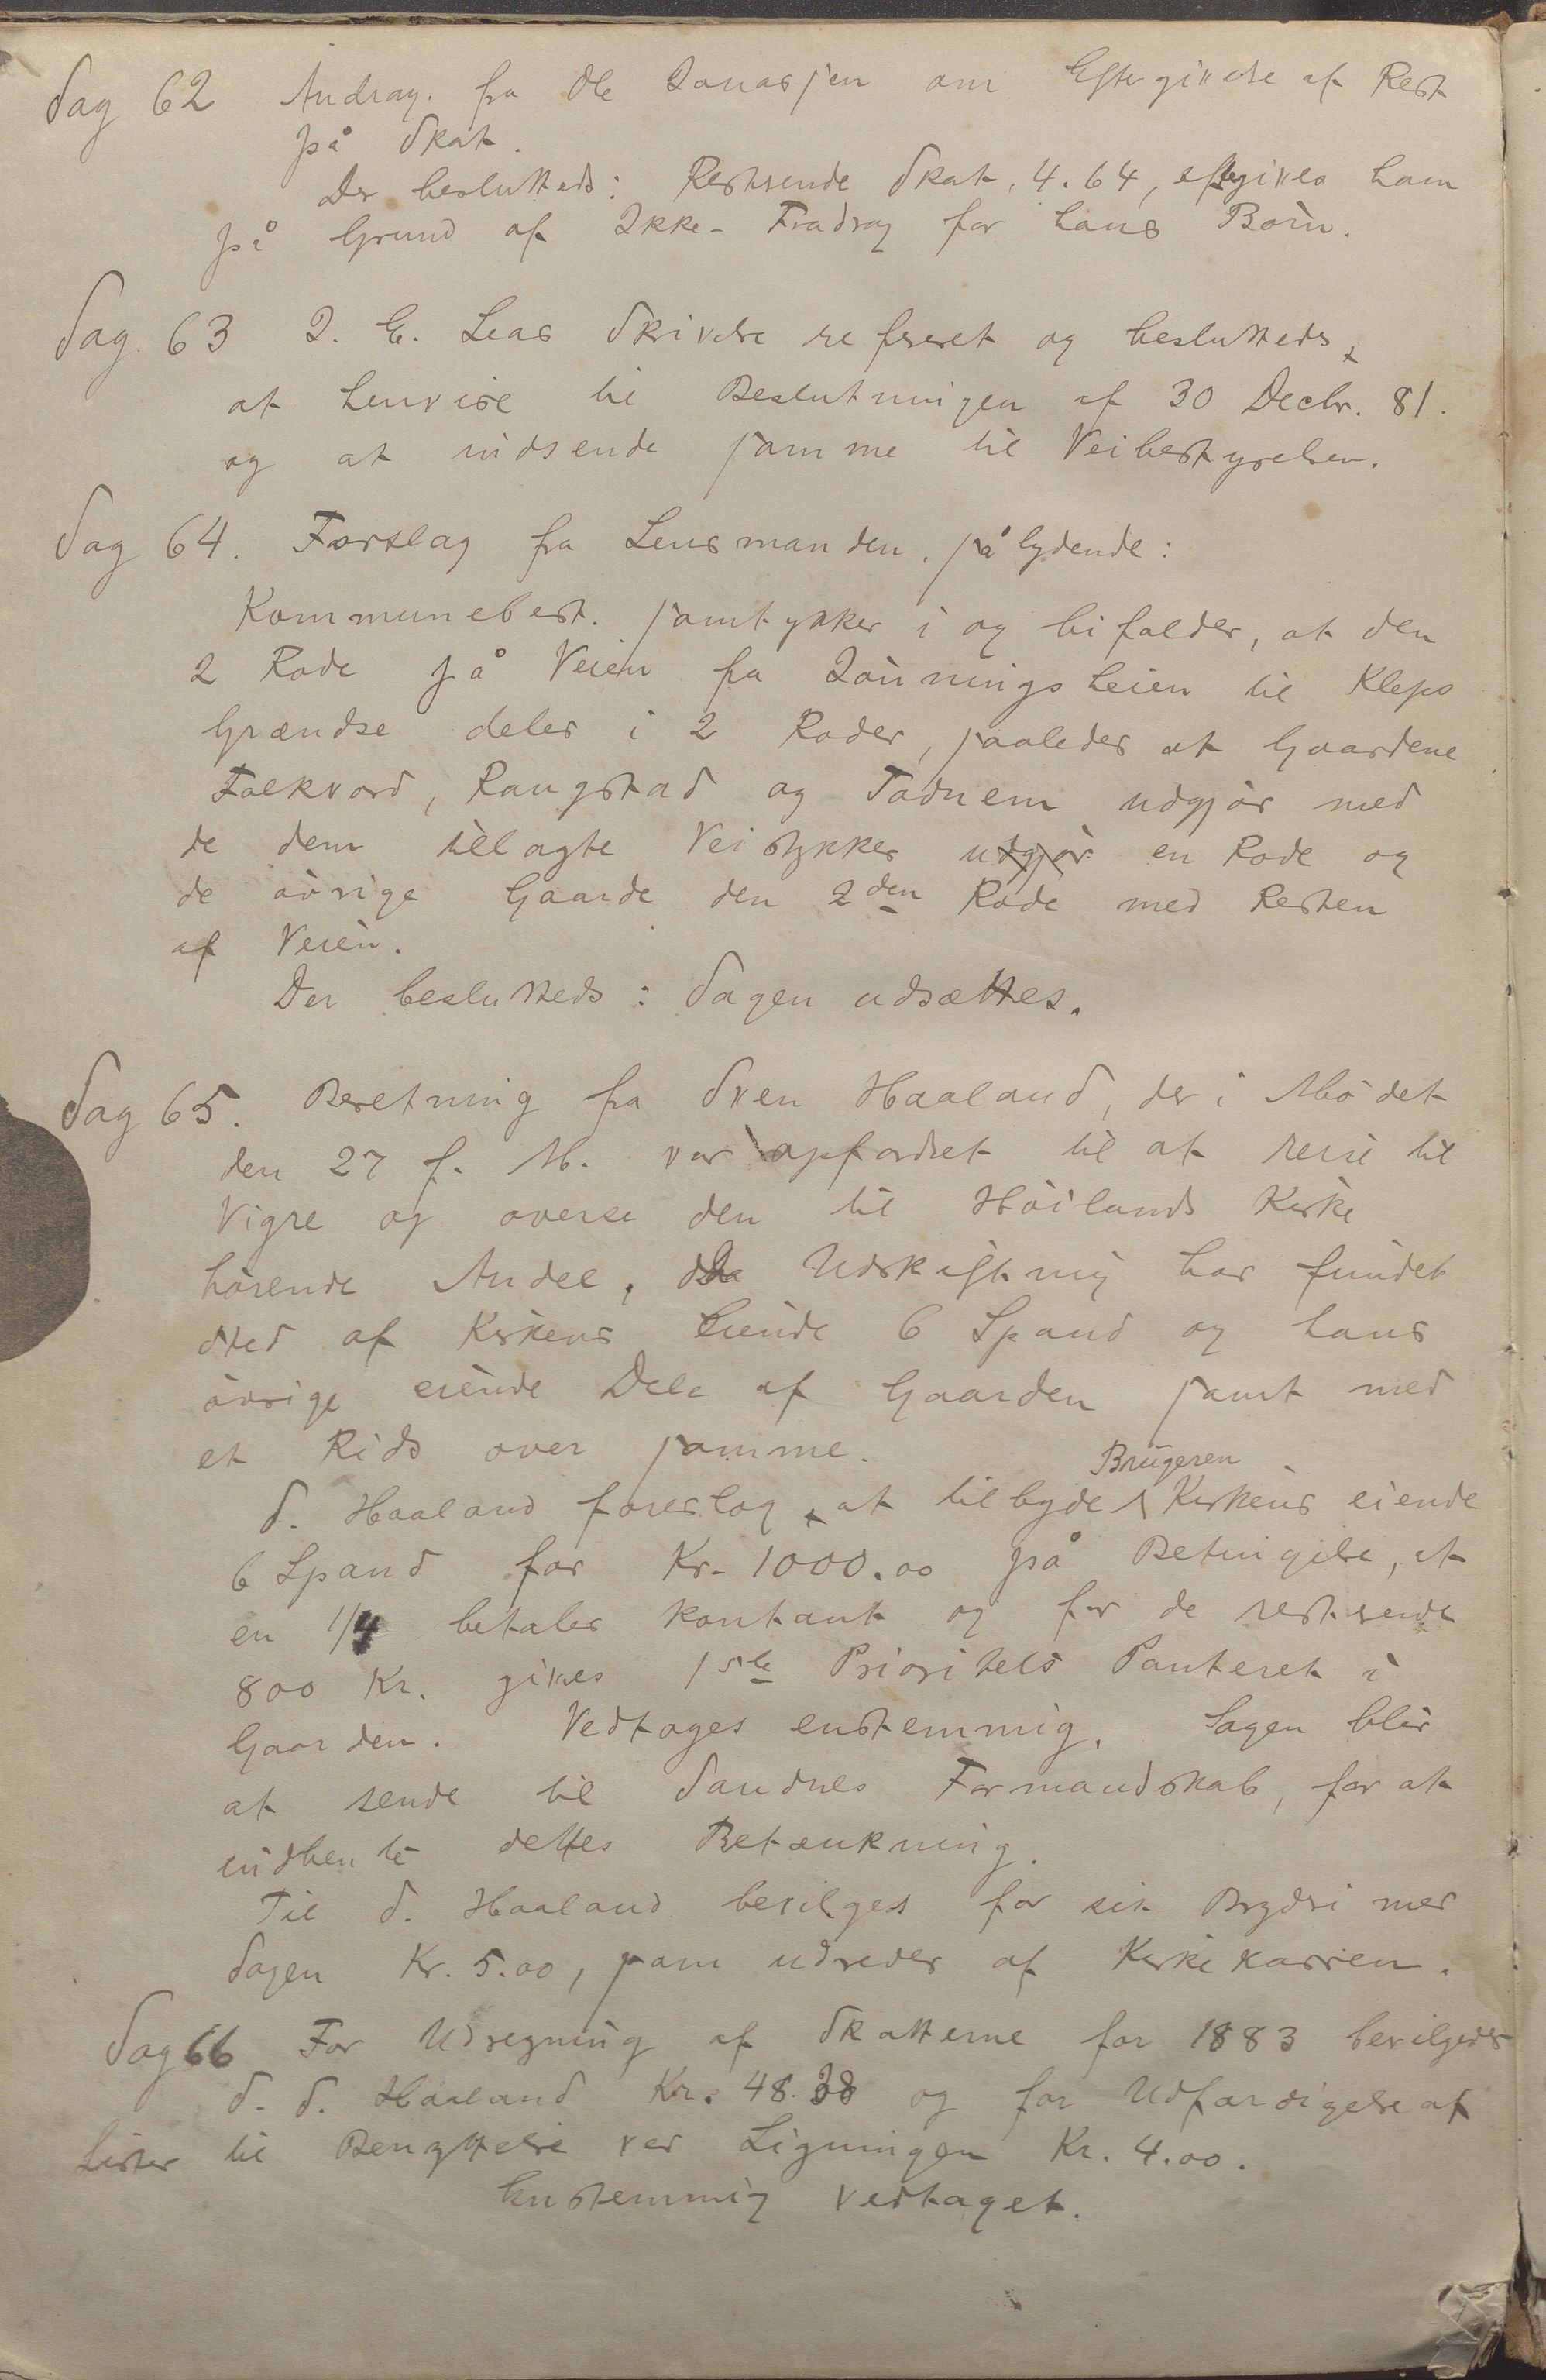 Sag 62 Andrag. fra Ole Jonassen om Eftergivelse af Rest
på Skat.
Der beslutteds: Resterende Skat, 4.64, eftergives ham
på Grund af Ikke-Fradrag for hans Børn.
Sag 63 I. E. Leas Skrivelse referet og beslutteds,
at henvise til Beslutningen af 30 Decbr. 81.
og at indsende samme til Veibestyrelsen.
Sag 64. Forslag fra Lensmanden, sålydende:
Kommunebest. samtykker i og bifalder, at den
2 Rode på Veien fra Jønningsheien til Kleps
Grændse deles i 2 Roder, saaledes at Gaardene
Folkvord, Raugstad og Todnem udgjør med
de dem tillagte Veistykker udgjør en Rode og
de øvrige Gaarde den 2den Rode med Resten
af Veien.
Der beslutteds: Sagen udsættes.
Sag 65. Beretning fra Sven Haaland, der i Mødet
den 27 f. M. var opfordret til at reise til
Vigre og overse den til Høilands Kirke
hørende Andel, da Udskiftning har fundet
Sted af Kirkens Eiende 6 Spand og hans
øvrige eiende Dele af Gaarden samt med
et Rids over samme.
Brugeren
S. Haaland foreslog, at tilbyde Kirkens eiende
6 Spand for Kr. 1000.00 på Betingelse, at
en 1/4 betales kontant og for de resterende
800 Kr. gives 1ste Prioritets Panteret i
Gaarden. Vedtoges enstemmig. Sagen blir
at sende til Sandnes Formandskab, for at
indhente dettes Betænkning.
Til S. Haaland bevilges for sit Brydri med
Sagen Kr. 5.00, som udredes af Kirkekassen.
Sag 66 For Udregning af Skatterne for 1883 bevilgedes
S. S. Haaland Kr. 48.38 og for Udfærdigelse af
Lister til Benyttelse ved Ligningen Kr. 4.00.
Enstemmig vedtaget.